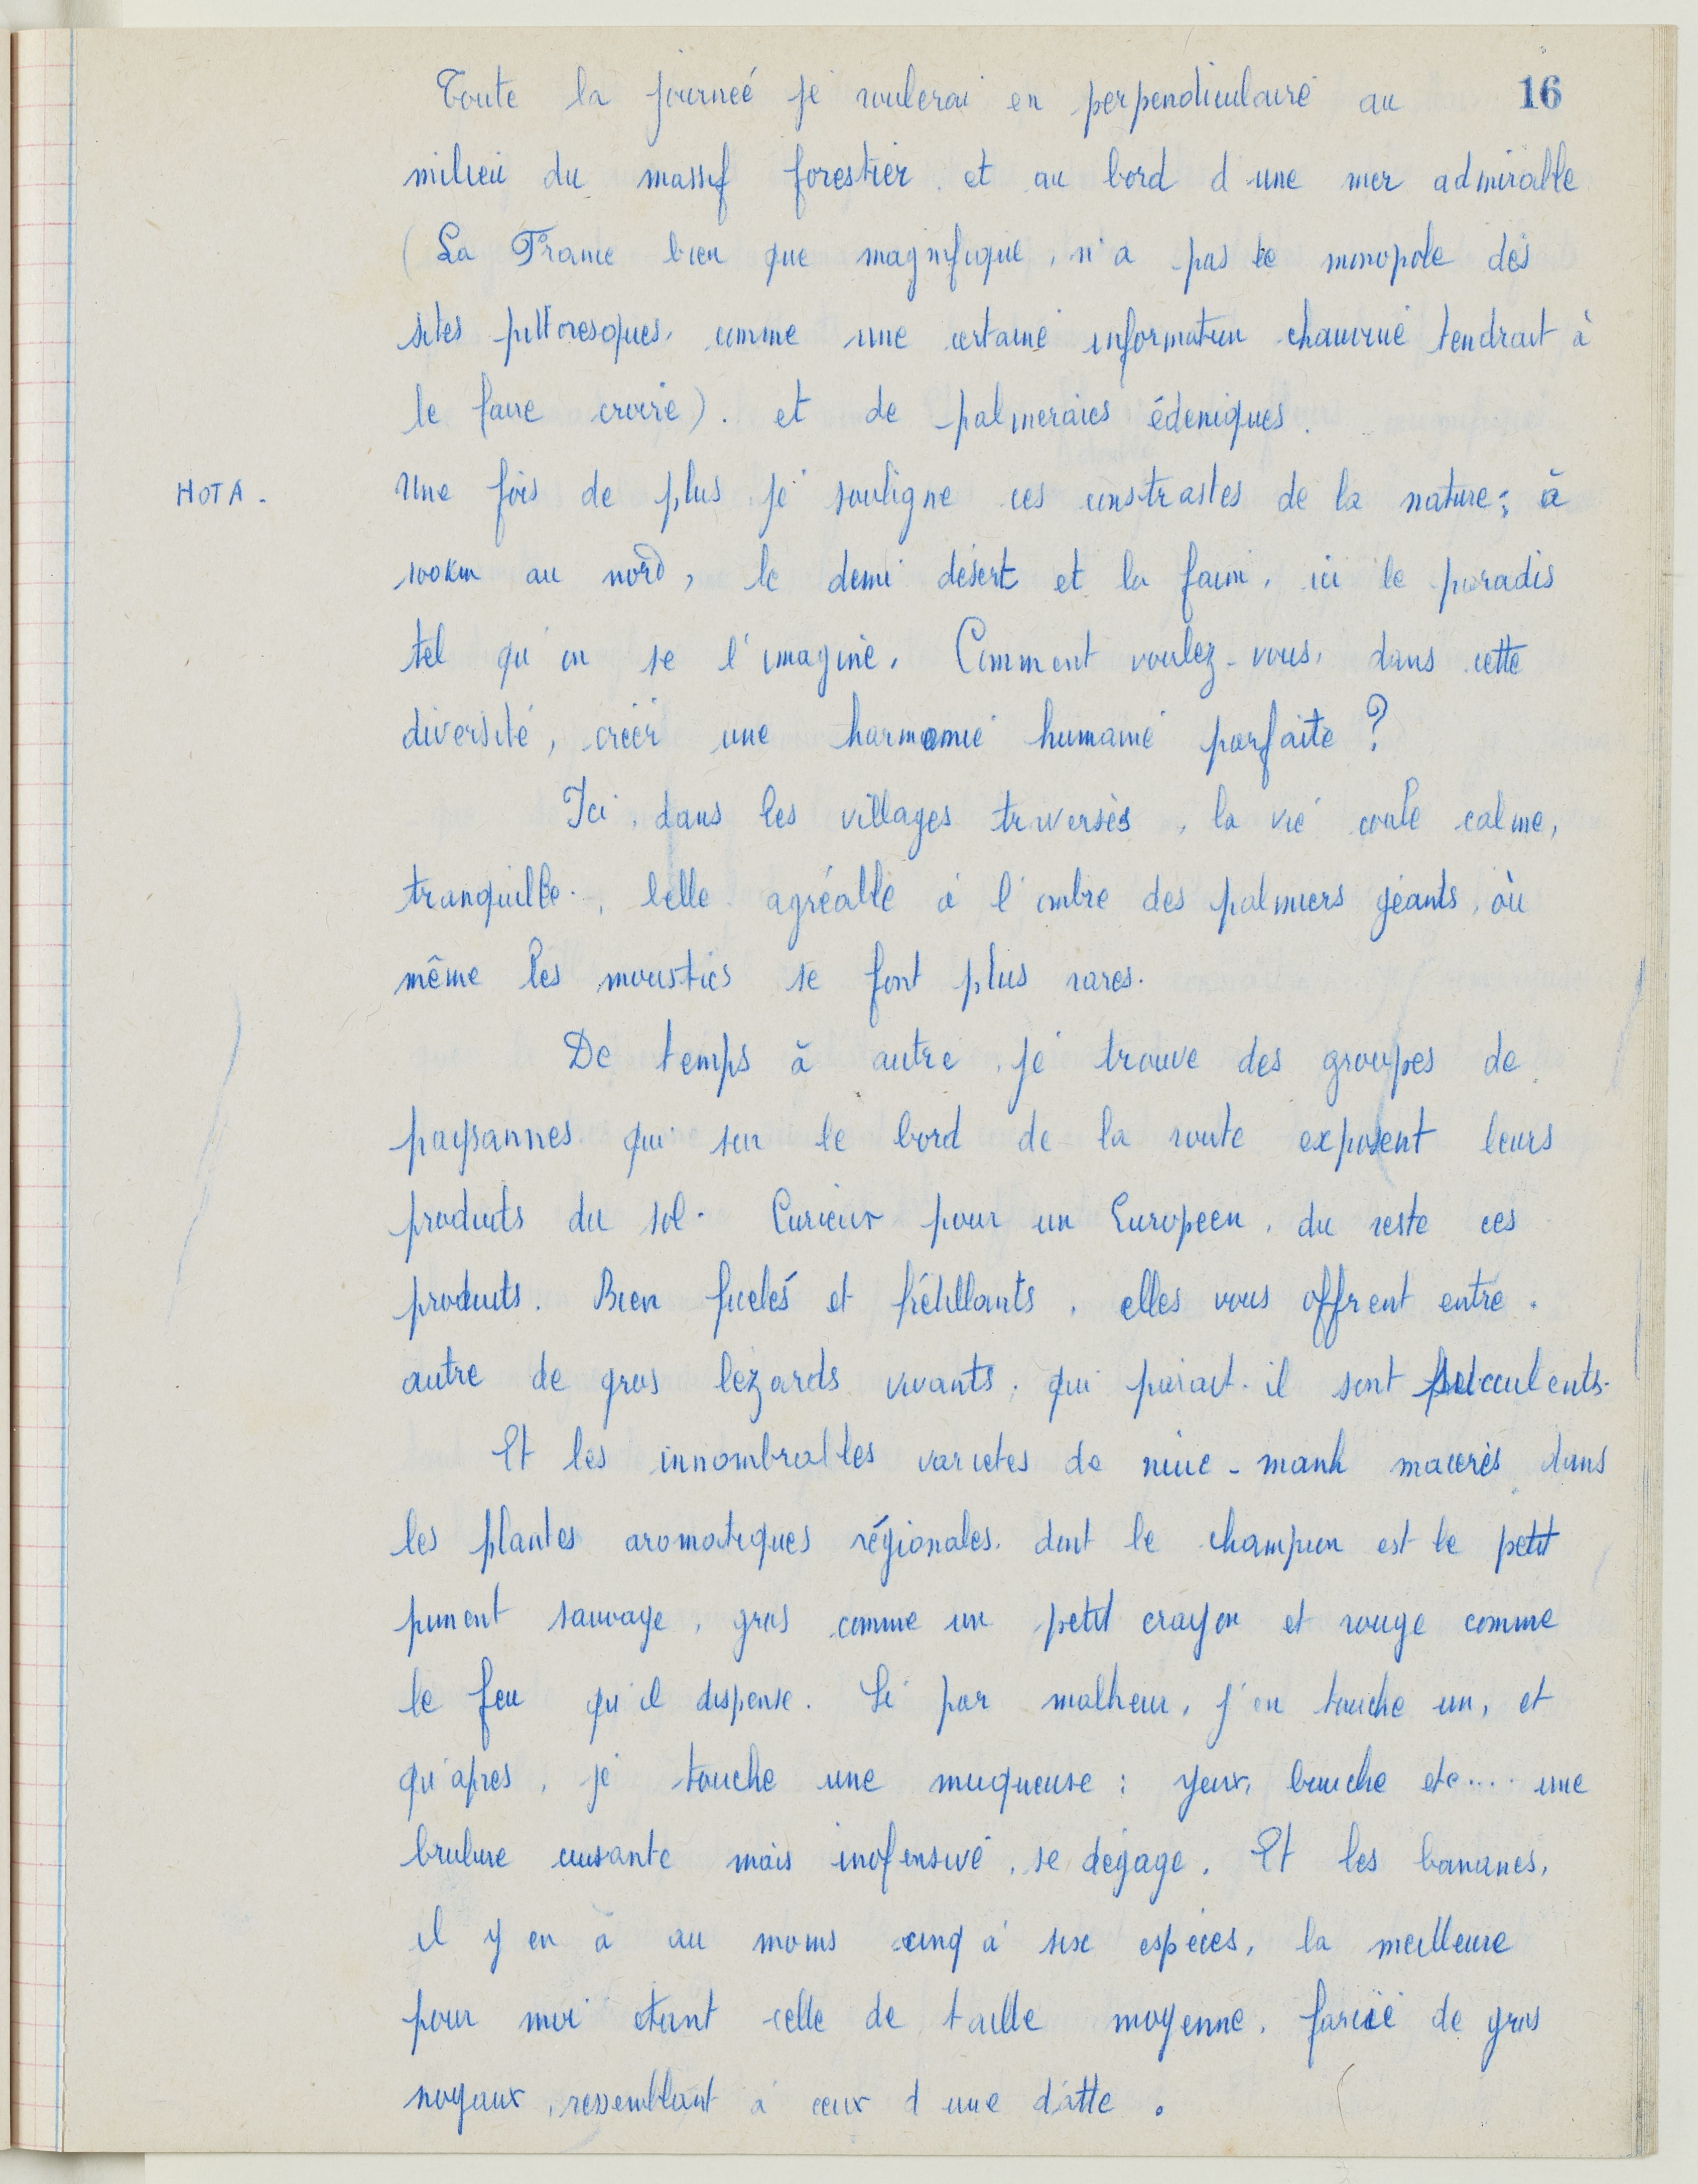 16
Toute la journeé je roulerai en perpendiculaire au
milieu du massif forestier et au bord d'une mer admirable
(La France bien que magnifique, n'a pas le monopole des
sites pittoresques, comme une certaine information chauvine tendrait à
le faire croire). et de palmeraies édeniques.
NOTA. Une fois de plus je souligne ces constrastes de la nature; à
100km au nord, le demi désert et la faim, ici le paradis
tel qu'on se l'imagine. Comment voulez-vous, dans cette
diversité, créer une harmonie humaine parfaite ?
Ici, dans les villages traversés, la vie coule calme,
tranquille, belle agréable à l'ombre des palmiers géants, où
même les moustics se font plus rares.
De temps à autre, je trouve des groupes de
paysannes qui sur le bord de la route exposent leurs
produits du sol. Curieux pour un Européen, du reste ces
produits. Bien ficelés et frétillants, elles vous offrent entre
autre de gros lézards vivants, qui parait-il sont succulents.
Et les innombrables variétés de niuc-manh macérés dans
les plantes aromatiques régionales, dont le champion est le petit
piment sauvage, gros comme un petit crayon et rouge comme
le feu qu'il dispense. Si par malheur, j'en touche un, et
qu'apres, je touche une muqueuse : yeux, bouche etc.... une
brulure cuisante mais inofensive, se dégage. Et les bananes,
il y en à au moins cinq à six espèces, la meilleure
pour moi étant celle de taille moyenne, farcie de gros
noyaux, ressemblant à ceux d'une datte.